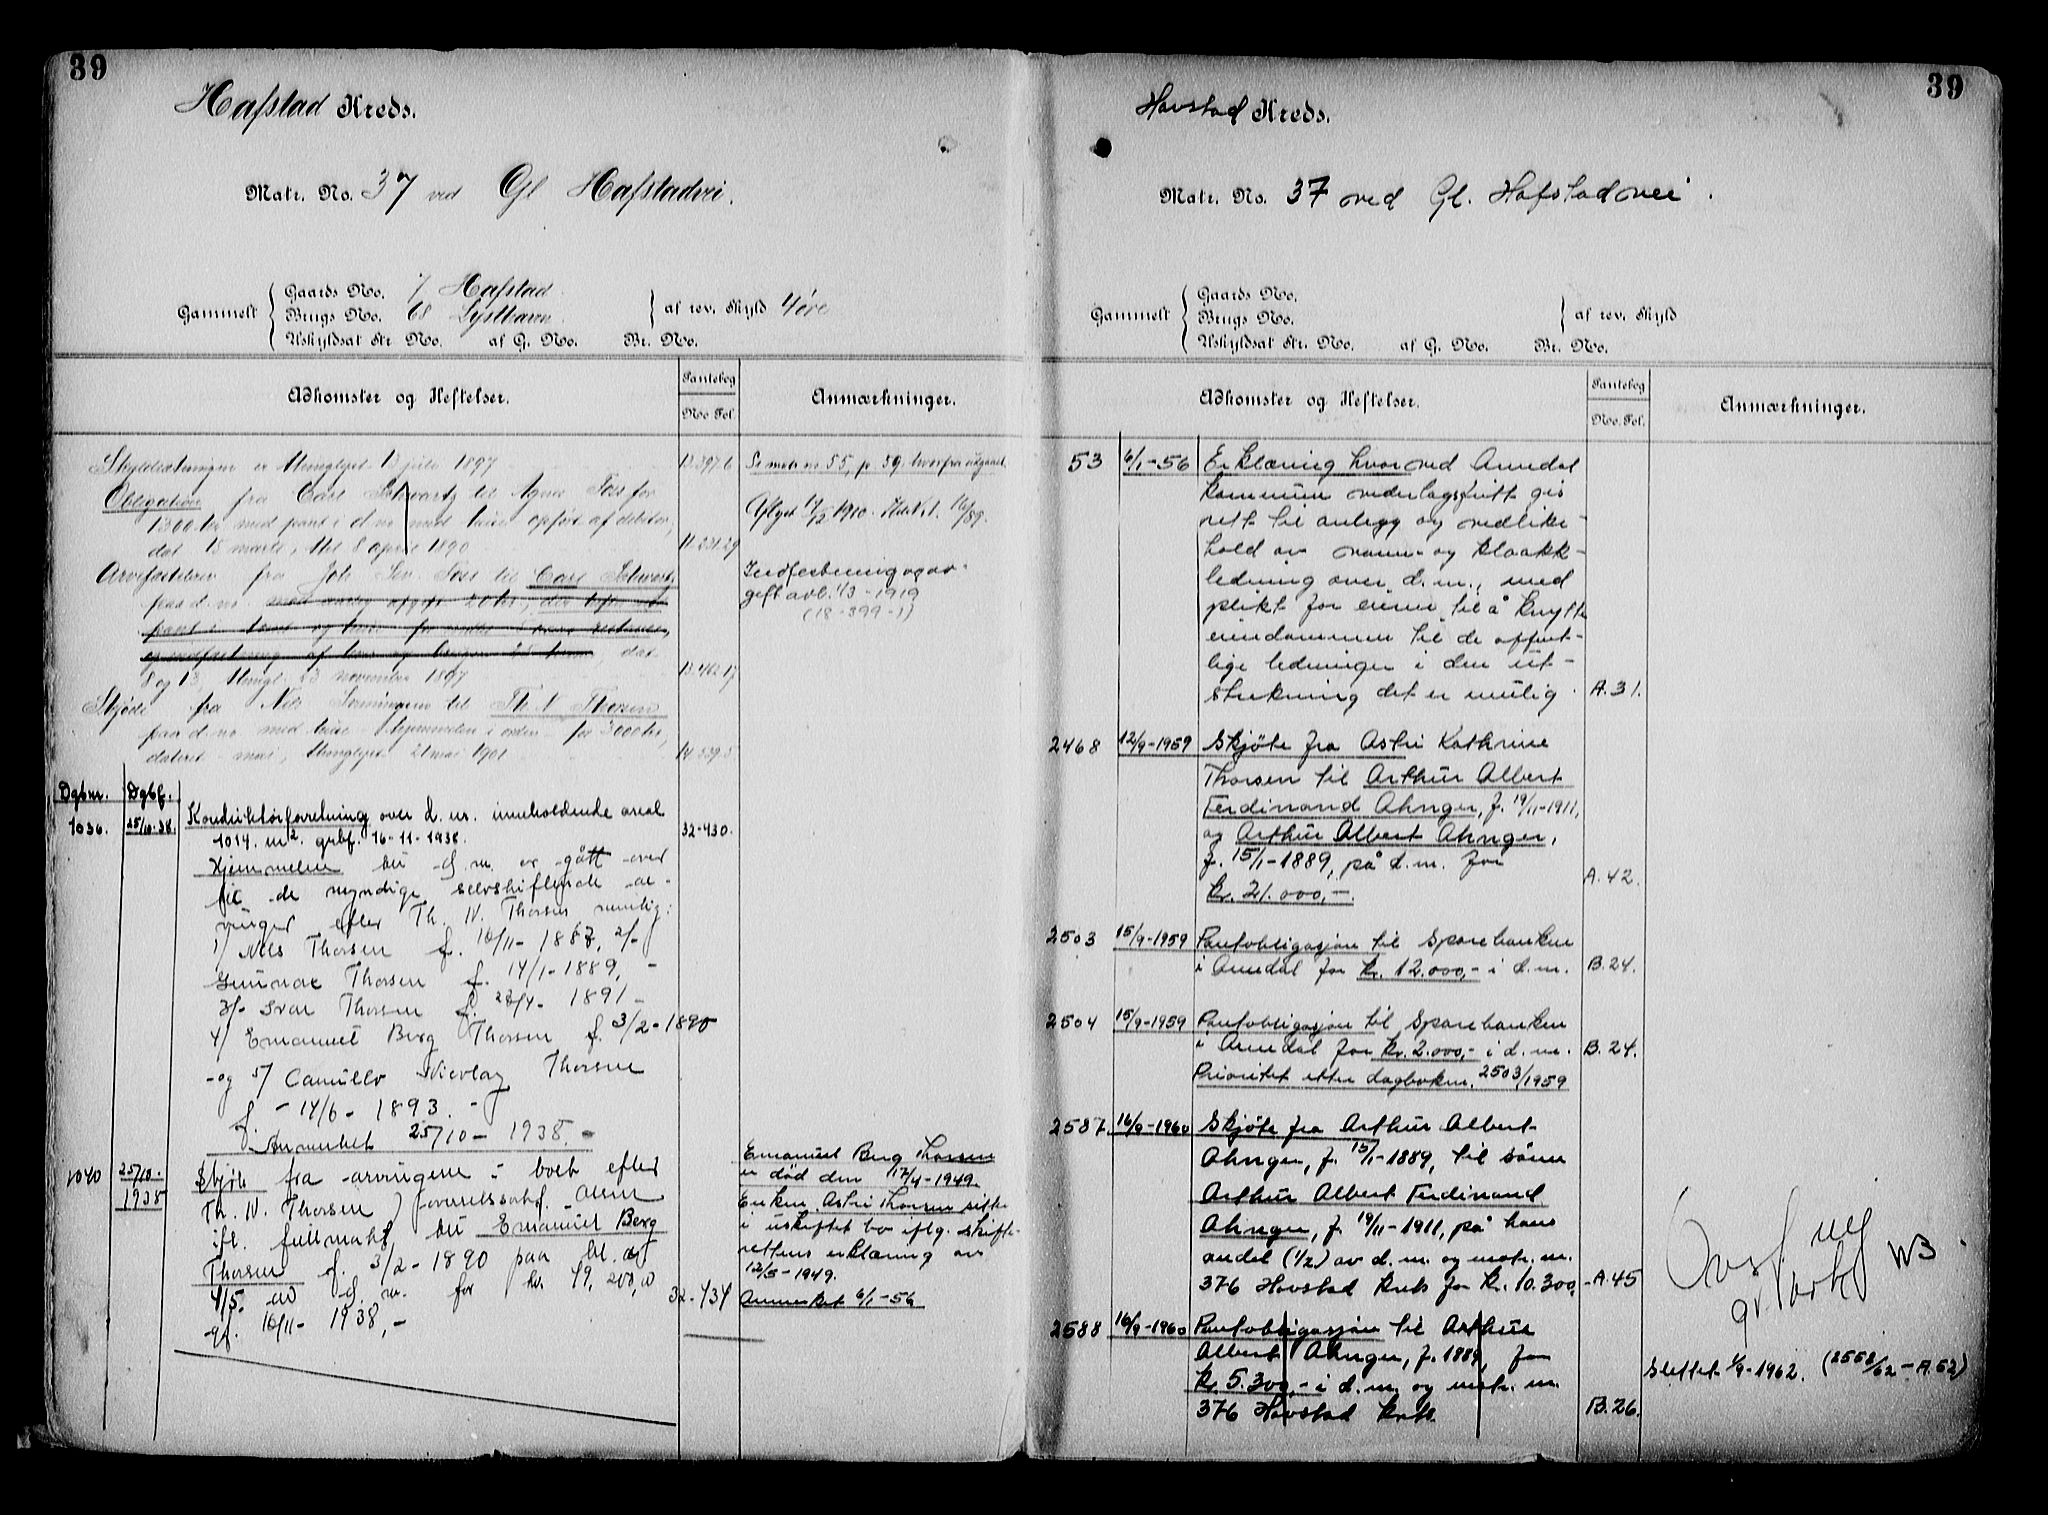 39
Hafstad Kreds.
Matr. No. 37 ved Gl Hafstadvei.
Gammelt
Gaards No. 7 Hafstad
Brugs No. 68
Uskyldsat Str. No. af G. No. Br. No.
af rev. Skyld 4 øre
Adkomster og Heftelser.
Pantebog
No. Fol.
Anmærkninger.
Skyldsætningen er thinglyst 13 juli 1897
13.397.6
Se matr no 55, p 59, hvorfra utgaaet
Obligation fra Carl Schwartz til Agnes Foss for
1300 kr med pant i d.no med huse opført af debitor,
dat 15 marts, thl 8 april 1890
11.231.29
1910.
Arvefæstebrev fra Joh Foss til Carl Schwartz
paa d.no.
dat
8 og 13 thingl. 23 november 1897
13.462.17
Indfæstning og av-
gift avl. 1/3-1919
(18-399-1)
Skjøde fra Nils til Th. N. Thorsen
paa d no med huse for 3000 kr,
dateret mai, thinglyst 21 mai 1901
14.539.5
Dgbnr. Dgbf.
1036. 25/10-38.
Konduktørforretning over d. nr. inneholdende areal
1014. m². grbf. 16-11-1938.
32-430.
Hjemmelen til d. nr. er gått over
til de myndige selvskiftende ar-
vinger efter Th. N. Thorsen nemlig:
1) Nils Thorsen f. 10/11-1887, 2/-
Gunnar Thorsen f. 14/1-1889, -
3/- Ivar Thorsen f. 1891-
4/ Emanuel Berg Thorsen f. 3/2-1890
-og 5/ Camillo Nicolay Thorsen
f - 14/6 - 1893. -
Anmerket 25/10-1938.-
1040
25/10-
1938
Skjøte fra arvingene i boet efter
Th. N. Thorsen
ifl. fullmakt til Emanuel Berg
Thorsen f. 3/2-1890 paa
4/5. av d. nr. for kr.
gf. 10/11-1938,-
32-434
Emanuel Berg Thorsen
er død den 17/4-1949.
Enken, Astri Thorsen sitter
i uskiftet bo iflg. skifte-
rettens erklæring av
12/5-1949.
Anmerket 6/1-56
39
Havstad Kreds.
Matr. No. 37 ved Gl. Hafstadvei.
Gammelt
Gaards No.
Brugs No.
Uskyldsat Str. No. af G. No. Br. No.
af rev. Skyld
Adkomster og Heftelser.
Pantebog
No. Fol.
Anmærkninger.
53 6/1-56 Erklæring hvorved Arendal
kommune vederlagsfritt gis
rett til anlegg og vedlike-
hold av vann- og kloakk-
ledning over d.nr., med
plikt for eieren til å knytte
eiendommen til de offent-
lige ledninger i den ut-
strekning det er mulig.
A.31.
2468 12/9-1959 Skjøte fra Astri Kathrine
Thorsen til Arthur Albert
Ferdinand Ahnger, f. 19/11-1911,
og Arthur Albert Ahnger,
f. 15/1-1889, på d.nr. for
kr. 21.000,-.
A.42.
2503 15/9-1959 Pantobligasjon til Sparebanken
i Arendal for kr. 12.000,- i d.nr.
B.24.
2504 15/9-1959 Pantobligasjon til Sparebanken
i Arendal for kr. 2.000,- i d.nr.
B.24.
Prioritet etter dagboknr. 2503/1959
2587. 16/9-1960 Skjøte fra Arthur Albert
Ahnger, f. 15/1-1889, til sønn
Arthur Albert Ferdinand
Ahnger, f. 19/11-1911, på hans
andel (1/2) av d.nr. og matr. nr.
376 Havstad krets for kr. 10.300,-
A.45
2588 16/9-1960 Pantobligasjon til Arthur
Albert Ahnger, f. 1889, for
kr. 5.300,- i d.nr. og matr. nr.
376 Havstad krets.
B.26.
Slettet 1/9-1962. (2558/62-A.52)